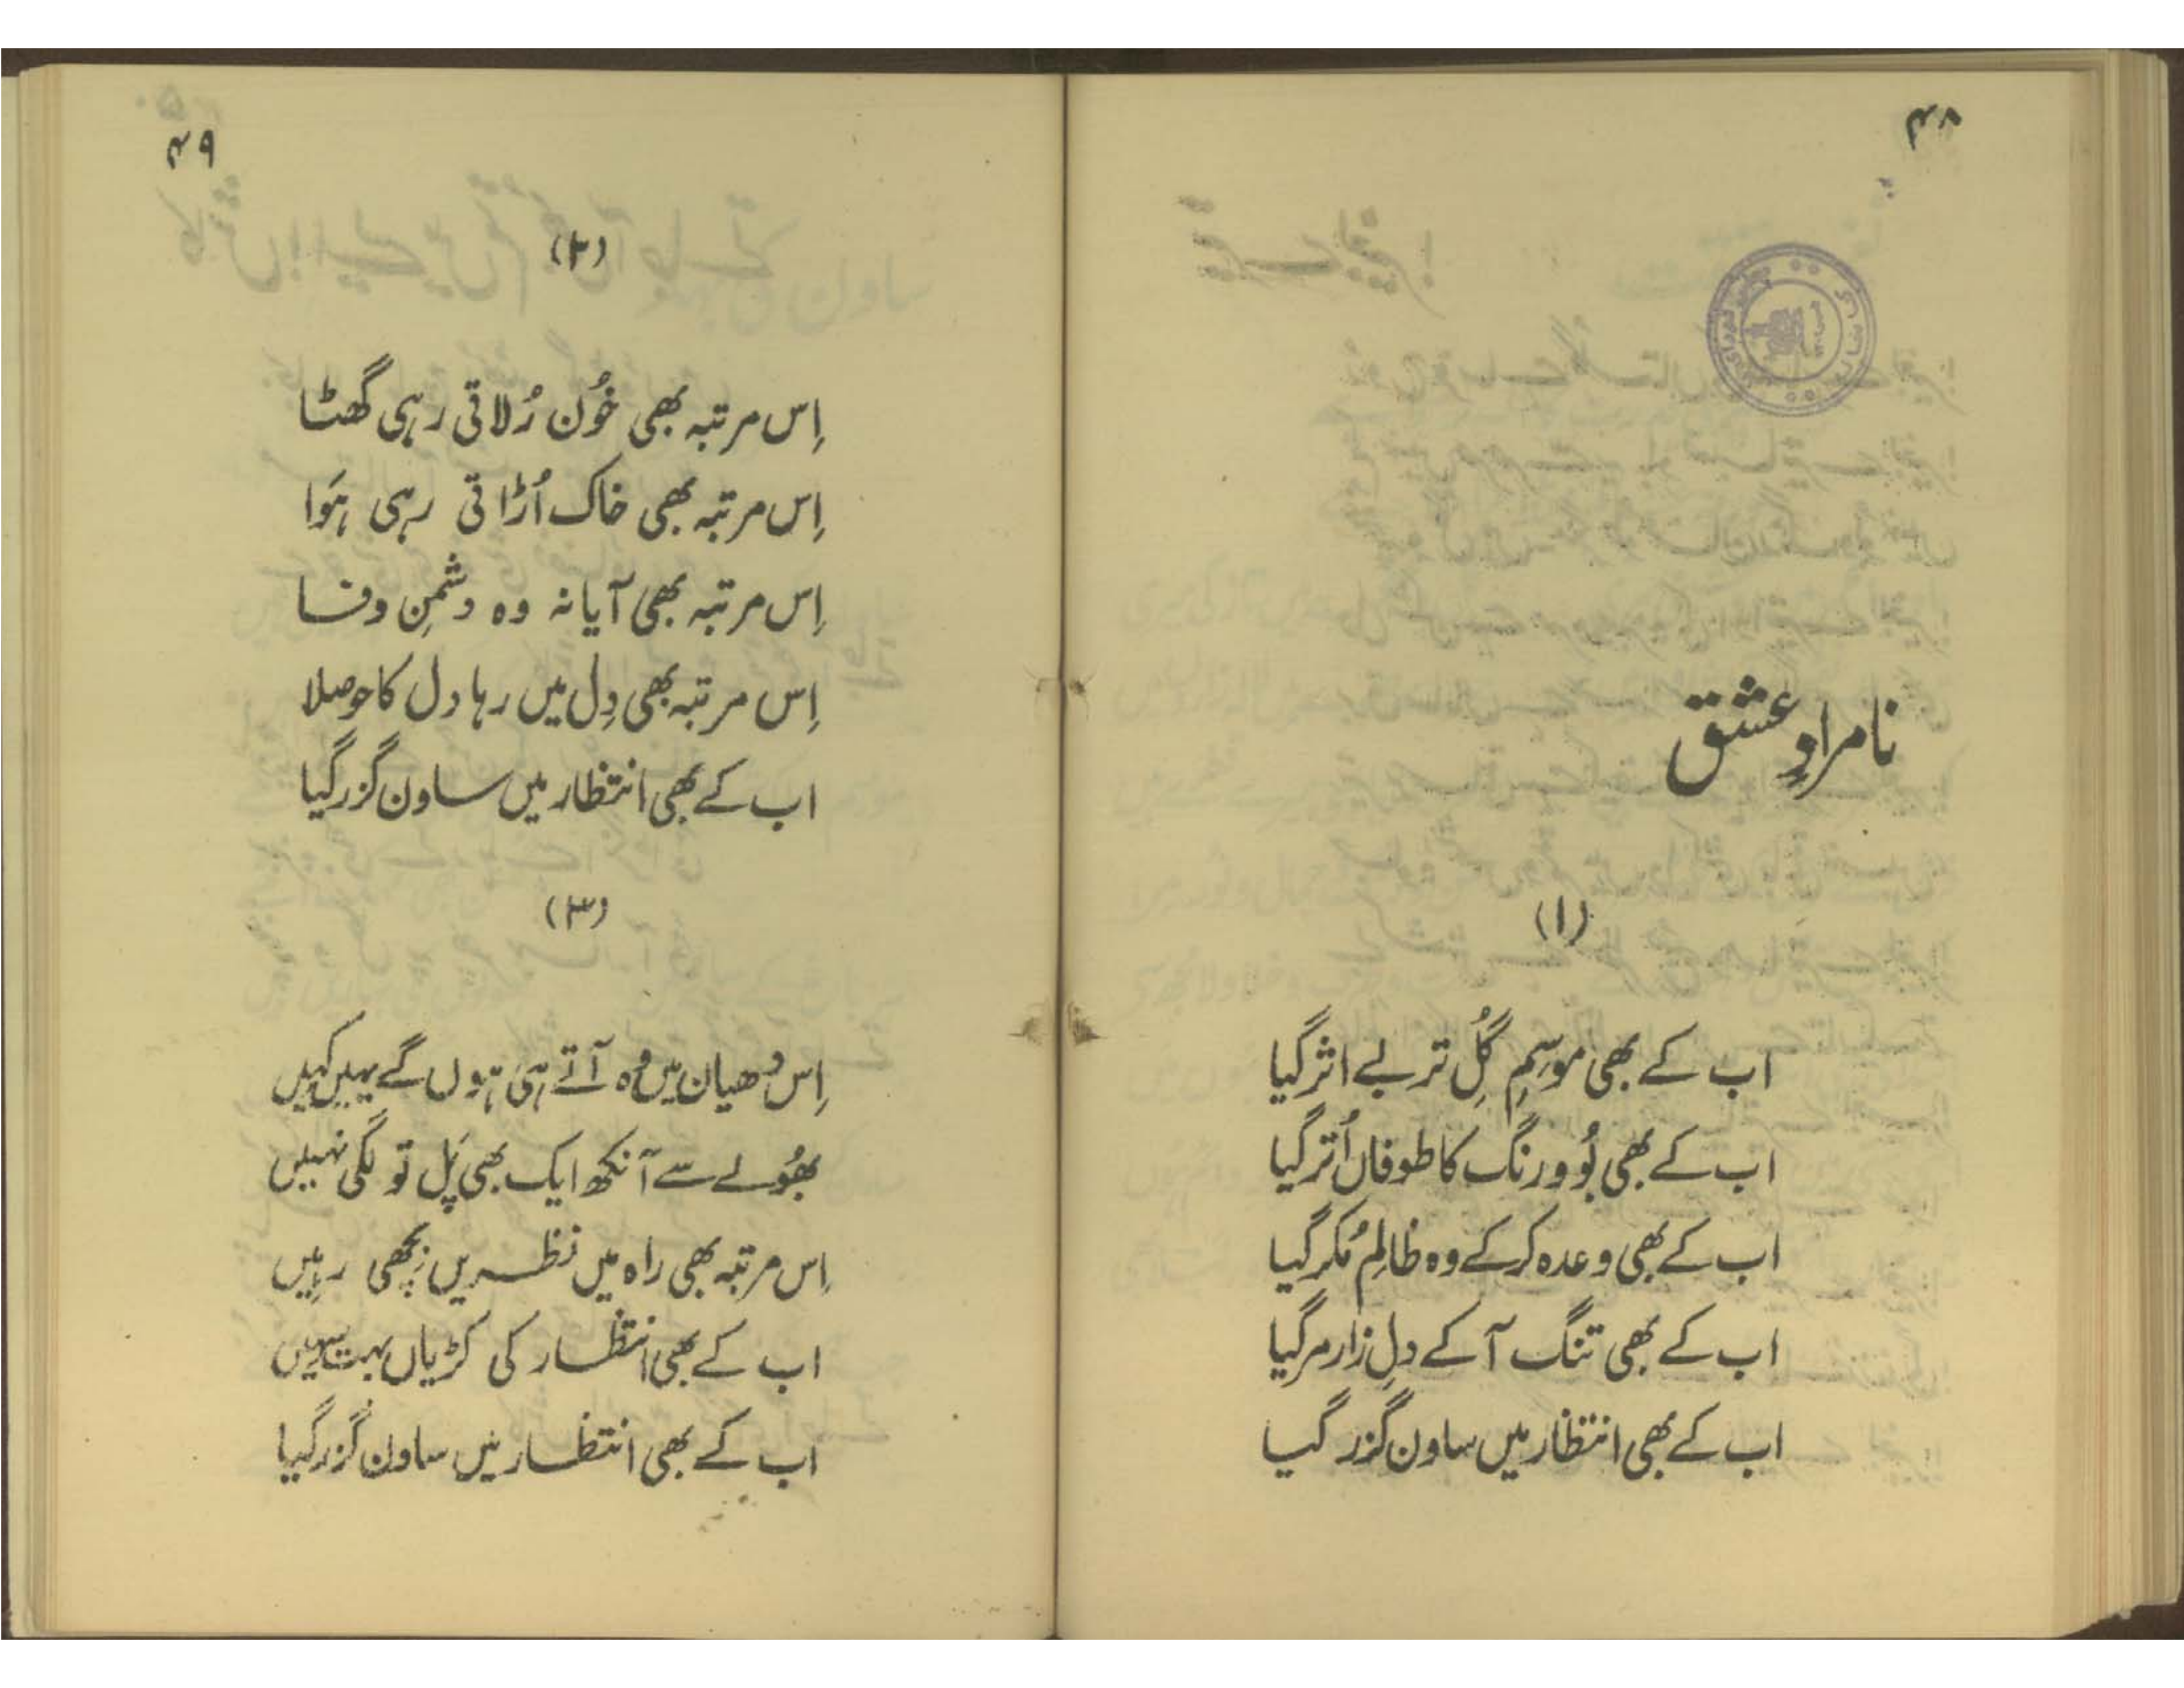 ۴۸
نامرادِ عشق
(۱)
اب کے بھی موسِمِ گُلِ تر بے اثر گیا
اب کے بھی بُو و رنگ کا طوفاں اُتر گیا
اب کے بھی وعدہ کر کے وہ ظالِم مُکر گیا
اب کے بھی تنگ آ کے دلِ زار مر گیا
اب کے بھی انتظار میں ساون گزر گیا
۴۹
(۲)
اِس مرتبہ بھی خُون رُلاتی رہی گھٹا
اِس مرتبہ بھی خاک اُڑاتی رہی ہَوا
اِس مرتبہ بھی آیا نہ وہ دشمنِ وفا
اِس مرتبہ بھی دِل میں رہا دل کا حوصلا
اب کے بھی انتظار میں ساون گزر گیا
(۳)
اِس دھیان میں وُہ آتے ہی ہوں گے یہیں کہیں
بھُولے سے آنکھ ایک بھی پَل تو لگی نہیں
اِس مرتبہ بھی راہ میں نظریں بِچھی رہیں
اب کے بھی انتظار کی کڑیاں بہت سہیں
اب کے بھی انتظار میں ساون گزر گیا